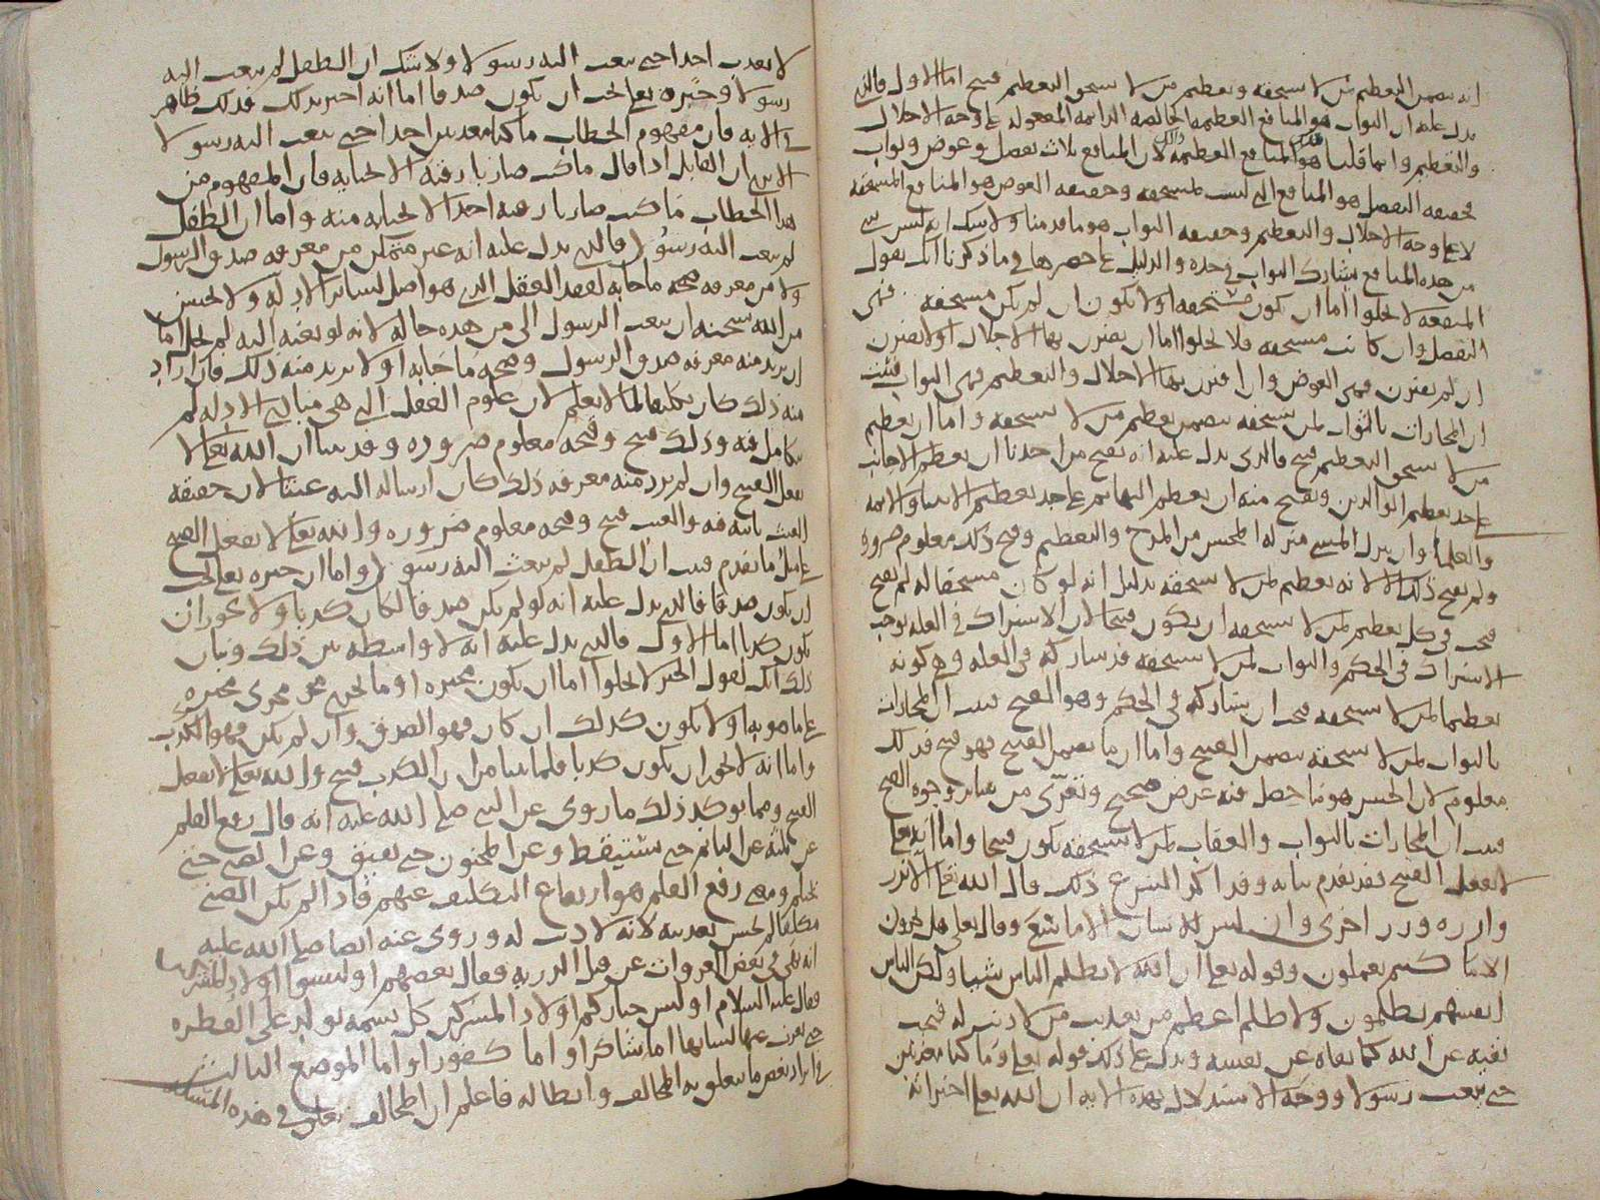 انه يتضمن التعظيم لمن لا يستحقه وتعظيم من لا يستحق التعظيم قبيح اما الاول فالذي
يدل عليه ان الثواب هو المنافع العظيمة الخالصة الدائمة المفعولة على وجه الاجلال
والتعظيم وانما قلنا هو المنافع العظيمة لان المنافع ثلاث تفضل وعوض وثواب
فحقيقة التفضل هو المنافع التي ليست بمستحقة وحقيقة العوض هو المنافع المستحقة
لا على وجه الاجلال والتعظيم وحقيقة الثواب هو ما قدمنا ولا شك انه ليس شي
من هذه المنافع يشارك الثواب في حده والدليل على حصرها في ما ذكرنا انك تقول
المنفعة لا تخلوا اما ان تكون مستحقة او لا تكون ان لم تكن مستحقة فهي
التفضل وان كانت مستحقة فلا تخلوا اما ان يقترن بها الاجلال او لا يقترن
ان لم يقترن فهي العوض وان اقترن بها الاجلال والتعظيم فهي الثواب فثبت
ان المجازات بالثواب لمن لا يستحقه يتضمن تعظيم من لا يستحقه واما ان تعظيم
من لا يستحق التعظيم قبيح فالذي يدل عليه انه يقبح من احدنا ان يعظم الاجانب
على حد تعظيم الوالدين ويقبح منه ان يعظم البهائم على حد تعظيم الانبيا والائمة
والعلما وان ينزل المسي منزلة المحسن من المدح والتعظيم وقبح ذلك معلوم ضرورة
ولم يقبح ذلك الا لانه تعظيم لمن لا يستحقه بدليل انه لو كان مستحقا له لم يقبح
فيجب في كل تعظيم لمن لا يستحقه ان يكون قبيحا لان الاشتراك في العلة يوجب
الاشتراك في الحكم والثواب لمن لا يستحقه قد شاركه في العلة وهي كونه
تعظيما لمن لا يستحقه فيجب ان يشاركه في الحكم وهو القبح فثبت ان المجازات
بالثواب لمن لا يستحقه يتضمن القبيح واما ان ما يتضمن القبيح فهو قبيح فذلك
معلوم لان الحسن هو ما حصل فيه غرض صحيح وتعرى من سائر وجوه القبح
فثبت ان المجازات بالثواب والعقاب لمن لا يستحقه تكون قبيحا واما انه تعالى
لا يفعل القبيح فقد تقدم بيانه وقد اكد الشرع ذلك قال الله تعالى الا تزر
وازرة وزر اخرى وان ليس للانسان الا ما سعى وقال تعالى هل تجزون
الا ما كنتم تعملون وقوله تعالى ان الله لا يظلم الناس شيا ولكن الناس
انفسهم يظلمون ولا ظلم اعظم من تعذيب من لا ذنب له فيجب
نفيه عن الله كما نفاه عن نفسه ويدل على ذلك قوله تعالى وما كنا معذبين
حتى نبعث رسولا ووجه الاستدلال بهذه الاية ان الله تعالى اخبر انه
لا يعذب احدا حتى يبعث اليه رسولا ولا شك ان الطفل لم يبعث اليه
رسولا وخبره تعالى يجب ان يكون صدقا اما انه اخبر بذلك فذلك ظاهر
في الاية فان مفهوم الخطاب ما كنا معذبين احدا حتى نبعث اليه رسولا
الا ترى ان القايل اذا قال ما كنت ضاربا رقبة الا لجناية فان المفهوم من
هذا الخطاب ما كنت ضاربا رقبة احد الا لجناية منه واما ان الطفل
لم يبعث اليه رسول فالذي يدل عليه انه غير متمكن من معرفة صدق الرسول
ولا من معرفة صحة ما جا به لفقد العقل الذي هو اصل لسائر الادلة ولا يحسن
من الله سبحنه ان يبعث الرسول الى من هذه حاله لانه لو بعثه اليه لم يخل اما
ان يريد منه معرفة صدق الرسول وصحة ما جا به او لا يريد منه ذلك فان اراد
منه ذلك كان تكليفا لما لا يعلم لان علوم العقل التي هي مباني الادلة لم
تتكامل فيه وذلك قبيح وقبحه معلوم ضرورة وقد بينا ان الله تعالى لا
يفعل القبيح وان لم يرد منه معرفة ذلك كان ارساله اليه عبثا لان حقيقة
العبث ثابتة فيه والعبث قبيح وقبحه معلوم ضرورة والله تعالى لا يفعل القبيح
على مثل ما تقدم فثبت ان الطفل لم يبعث اليه رسول واما ان خبره تعالى يجب
ان يكون صدقا فالذي يدل عليه انه لو لم يكن صدقا لكان كذبا ولا يجوز ان
يكون كذبا اما الاول فالذي يدل عليه انه لا واسطة بين ذلك وبيان
ذلك انك تقول الخبر لا يخلوا اما ان يكون مخبره او ما يجري مجرى مخبره
على ما هو به او لا يكون كذلك ان كان فهو الصدق وان لم يكن فهو الكذب
واما انه لا يجوز ان يكون كذبا فلما بينا من ان الكذب قبيح والله تعالى لا يفعل
القبيح ومما يوكد ذلك ما روي عن النبي صلى الله عليه انه قال رفع القلم
عن ثلثة عن النائم حتى يستيقظ وعن المجنون حتى يفيق وعن الصبي حتى
يحتلم ومعنى رفع القلم هو ارتفاع التكليف عنهم فاذا لم يكن الصبي
مكلفا لم يحسن تعذيبه لانه لا ذنب له وروي عنه ايضا صلى الله عليه
انه نهى في بعض الغزوات عن قتل الذرية فقال بعضهم اوليسوا اولاد المشركين
فقال عليه السلام اوليس خياركم اولاد المشركين كل نسمة تولد على الفطرة
حتى يعرب عنها لسانها اما شاكرا واما كفورا واما الموضع الثالث
في ايراد بعض ما يتعلق به المخالف وابطاله فاعلم ان المخالف تعلق في هذه المسئلة